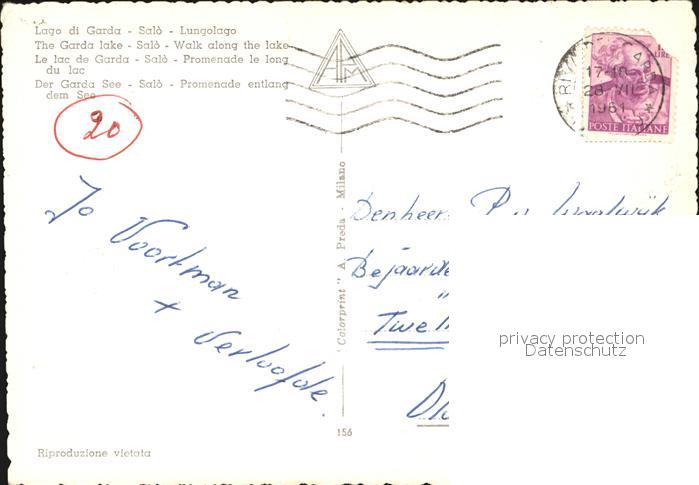 Lago di Garda - Salò - Lungolago
The Garda lake - Salò - Walk along the lake
Le lac de Garda - Salò - Promenade le long
du lac
Der Garda See - Salò - Promenade entlang
dem See
20
17-18
28 VII
1961
POSTE ITALIANE
Jo Voortman
+ Verloofde.
"Colorprint" A. Preda - Milano
Denheer
Bejaarde
Twe
156
Riproduzione vietata
privacy protection
Datenschutz